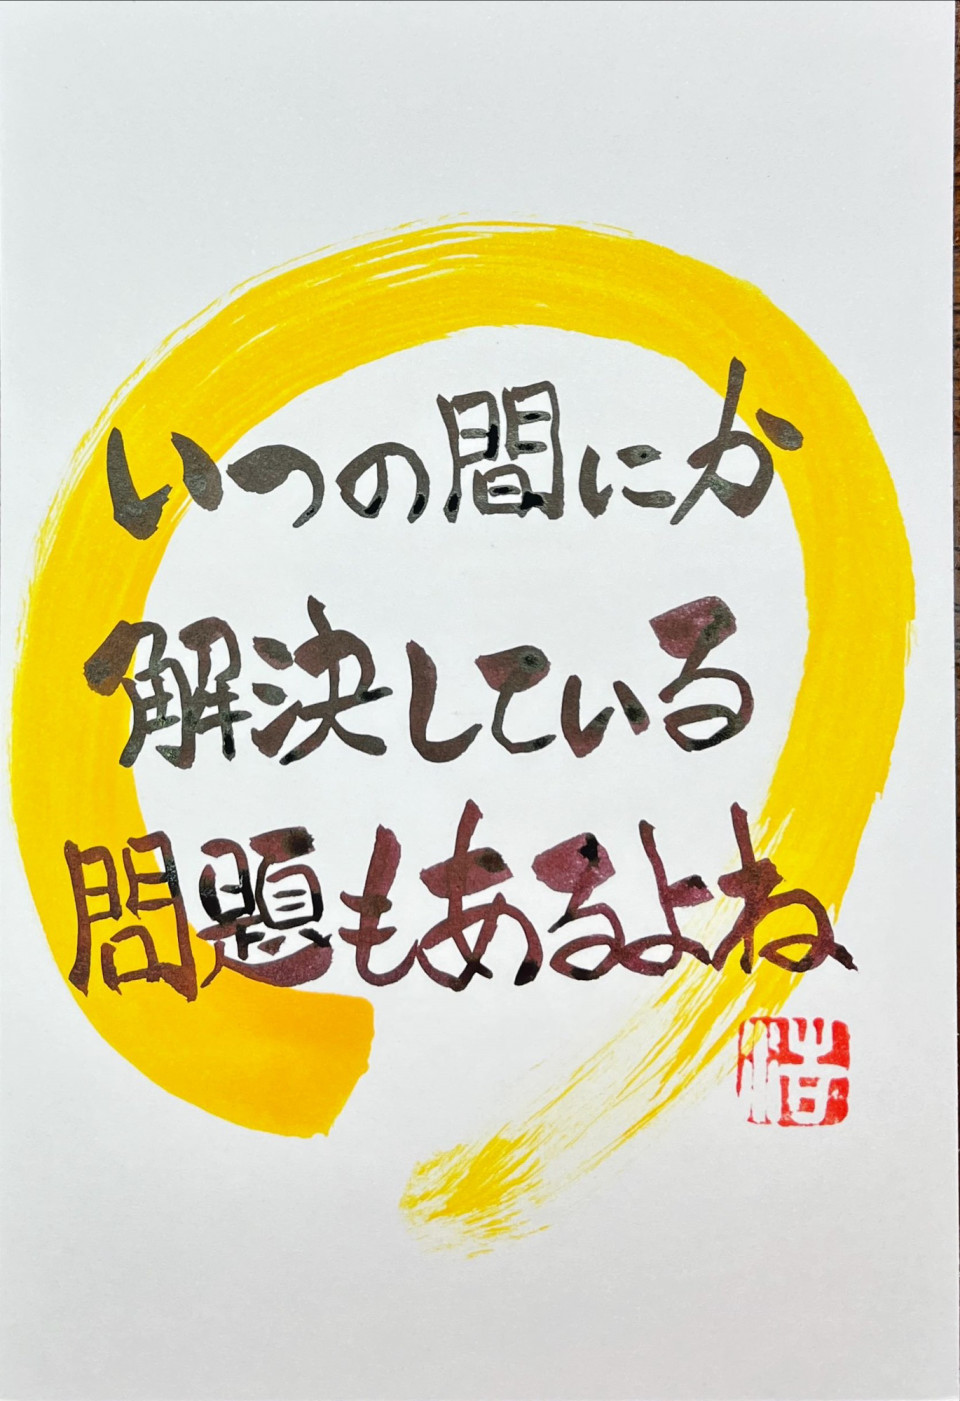 いつの間にか
解決している
問題もあるよね